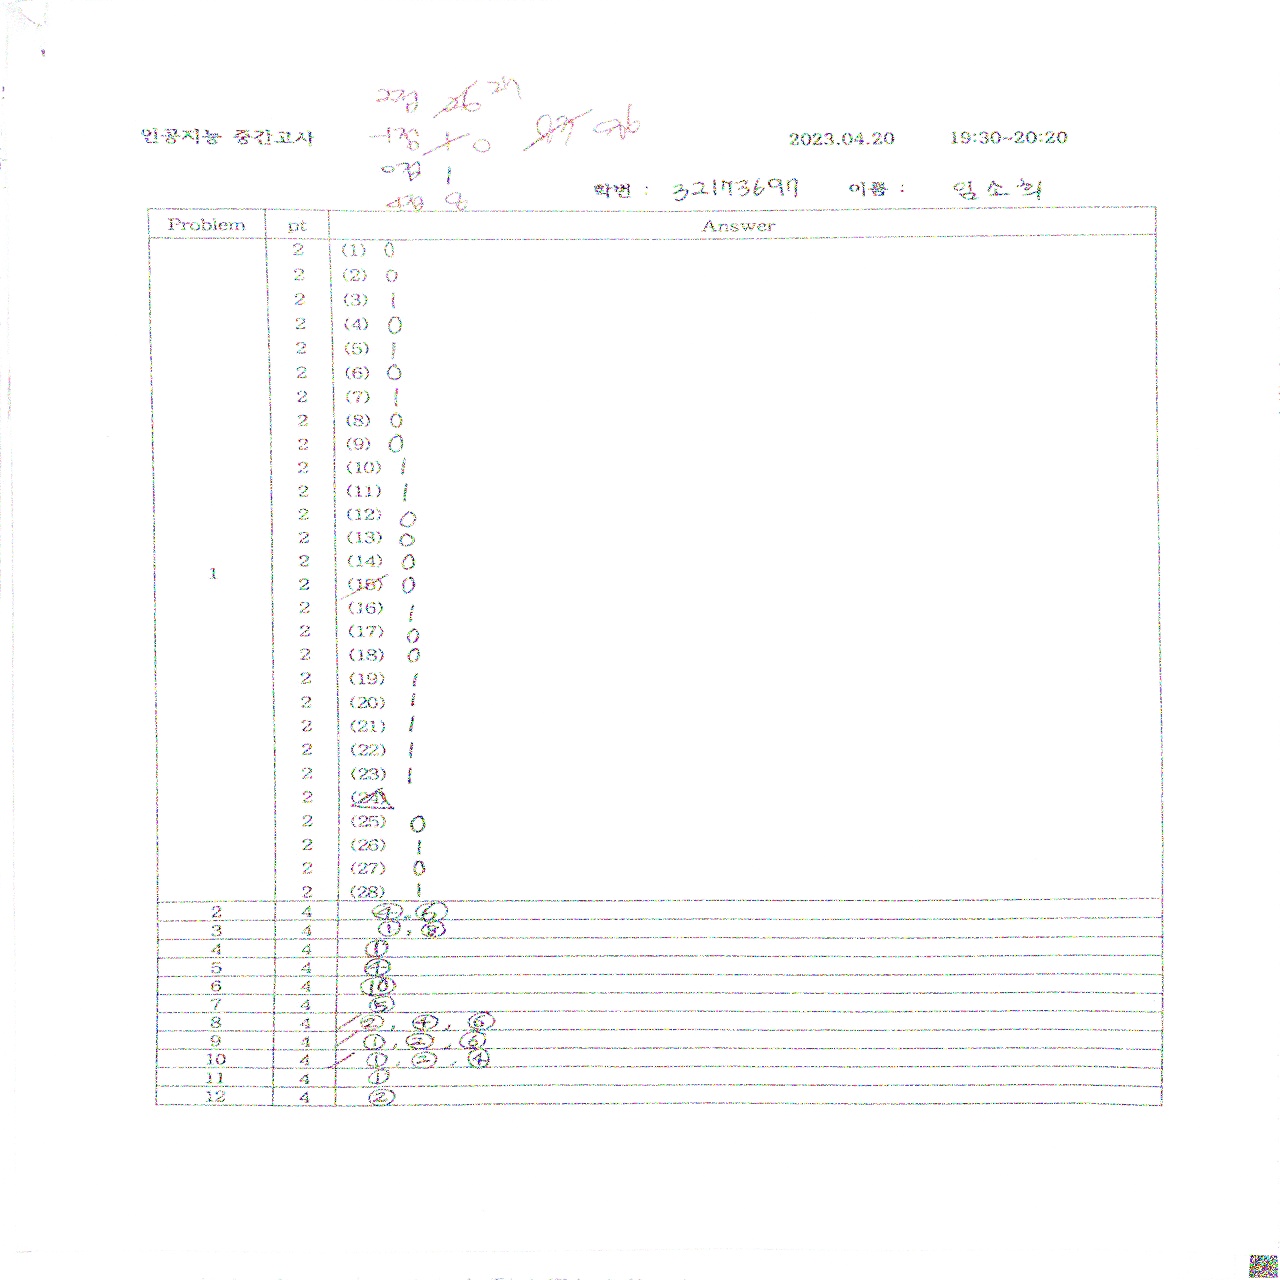 2점 26 27
인공지능 중간고사 -1점 1 0 2023.04.20 19:30~20:20
0점 1
학번 : 32173697 이름 : 임소희
4점 8
Problem pt Answer
2 (1) 0
2 (2) 0
2 (3) 1
2 (4) 0
2 (5) 1
2 (6) 0
2 (7) 1
2 (8) 0
2 (9) 0
2 (10) 1
2 (11) 1
2 (12) 0
2 (13) 0
2 (14) 0
1
2 (15) 0
2 (16) 1
2 (17) 0
2 (18) 0
2 (19) 1
2 (20) 1
2 (21) 1
2 (22) 1
2 (23) 1
2 (24)
2 (25) 0
2 (26) 1
2 (27) 0
2 (28) 1
2 4 ④, ⑥
3 4 ①,
4 4 ①
5 4 ④
6 4 ⑩
7 4 ⑤
8 4 ②, ④, ⑥
9 4 ①, ②,
10 4 ①, ②, ④
11 4 ①
12 4 ②